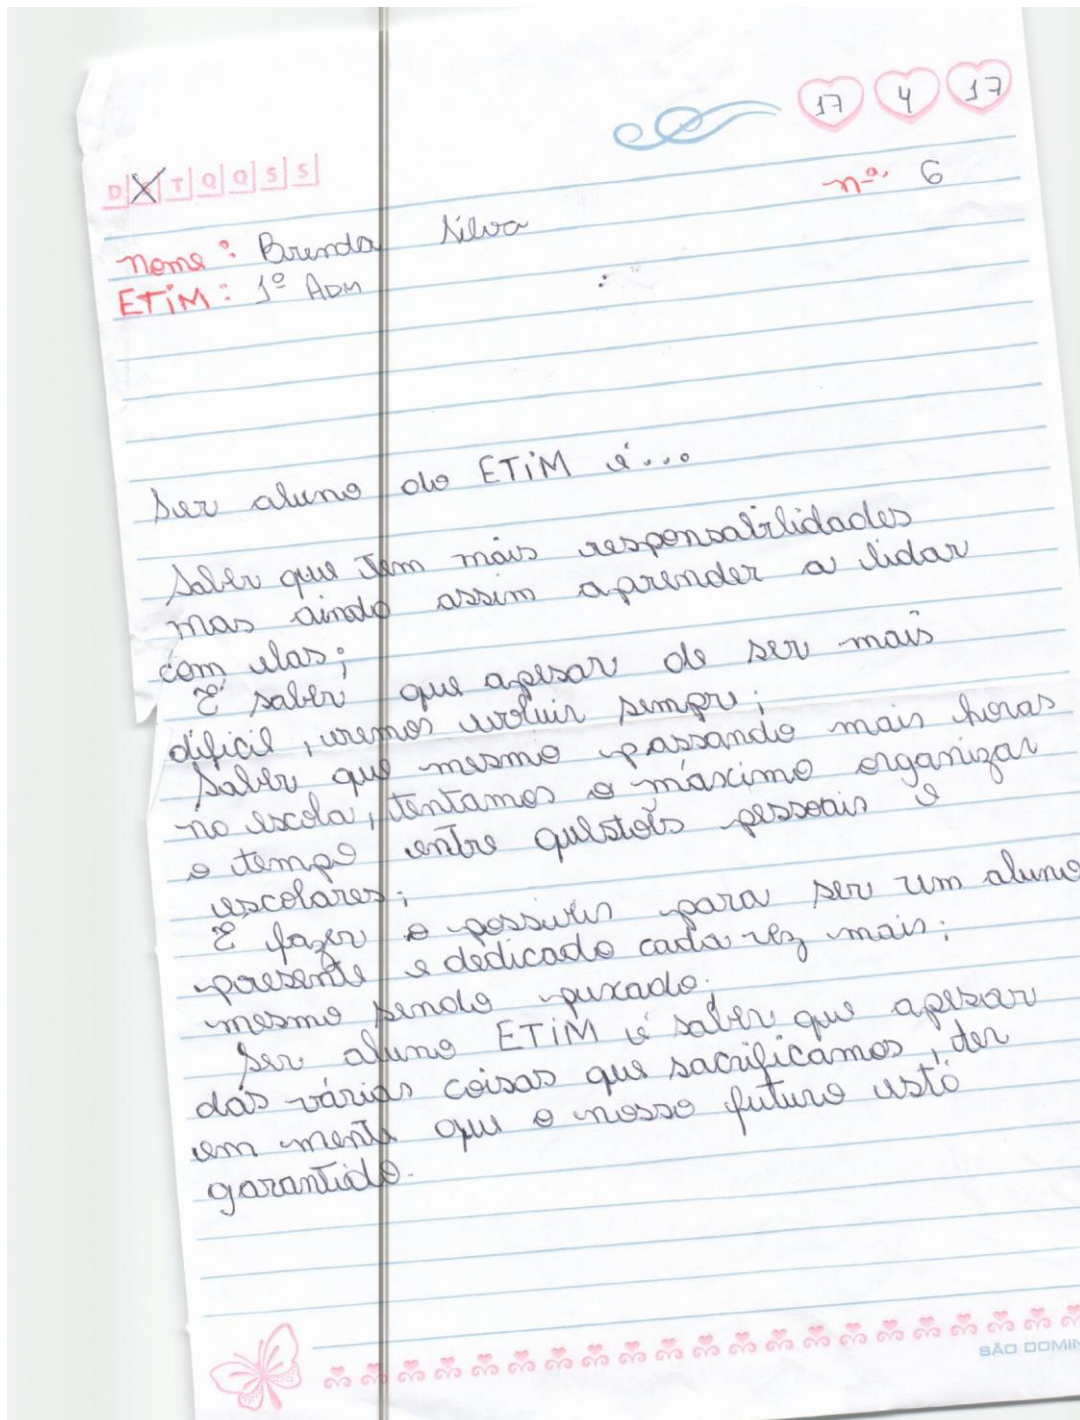 17 4 17
D S T Q Q S S
nº. 6
Nome: Brenda Silva
ETiM: 1º ADM
Ser aluno do ETiM é...
Saber que tem mais responsabilidades
mas ainda assim aprender a lidar
com elas;
É saber que apesar de ser mais
difícil, iremos evoluir sempre;
Saber que mesmo passando mais horas
na escola, tentamos o máximo organizar
o tempo entre questões pessoais e
escolares;
É fazer o possível para ser um aluno
presente e dedicado cada vez mais;
mesmo sendo puxado;
Ser aluno ETiM é saber que apesar
das várias coisas que sacrificamos, ter
em mente que o nosso futuro está
garantido.
SÃO DOMIN